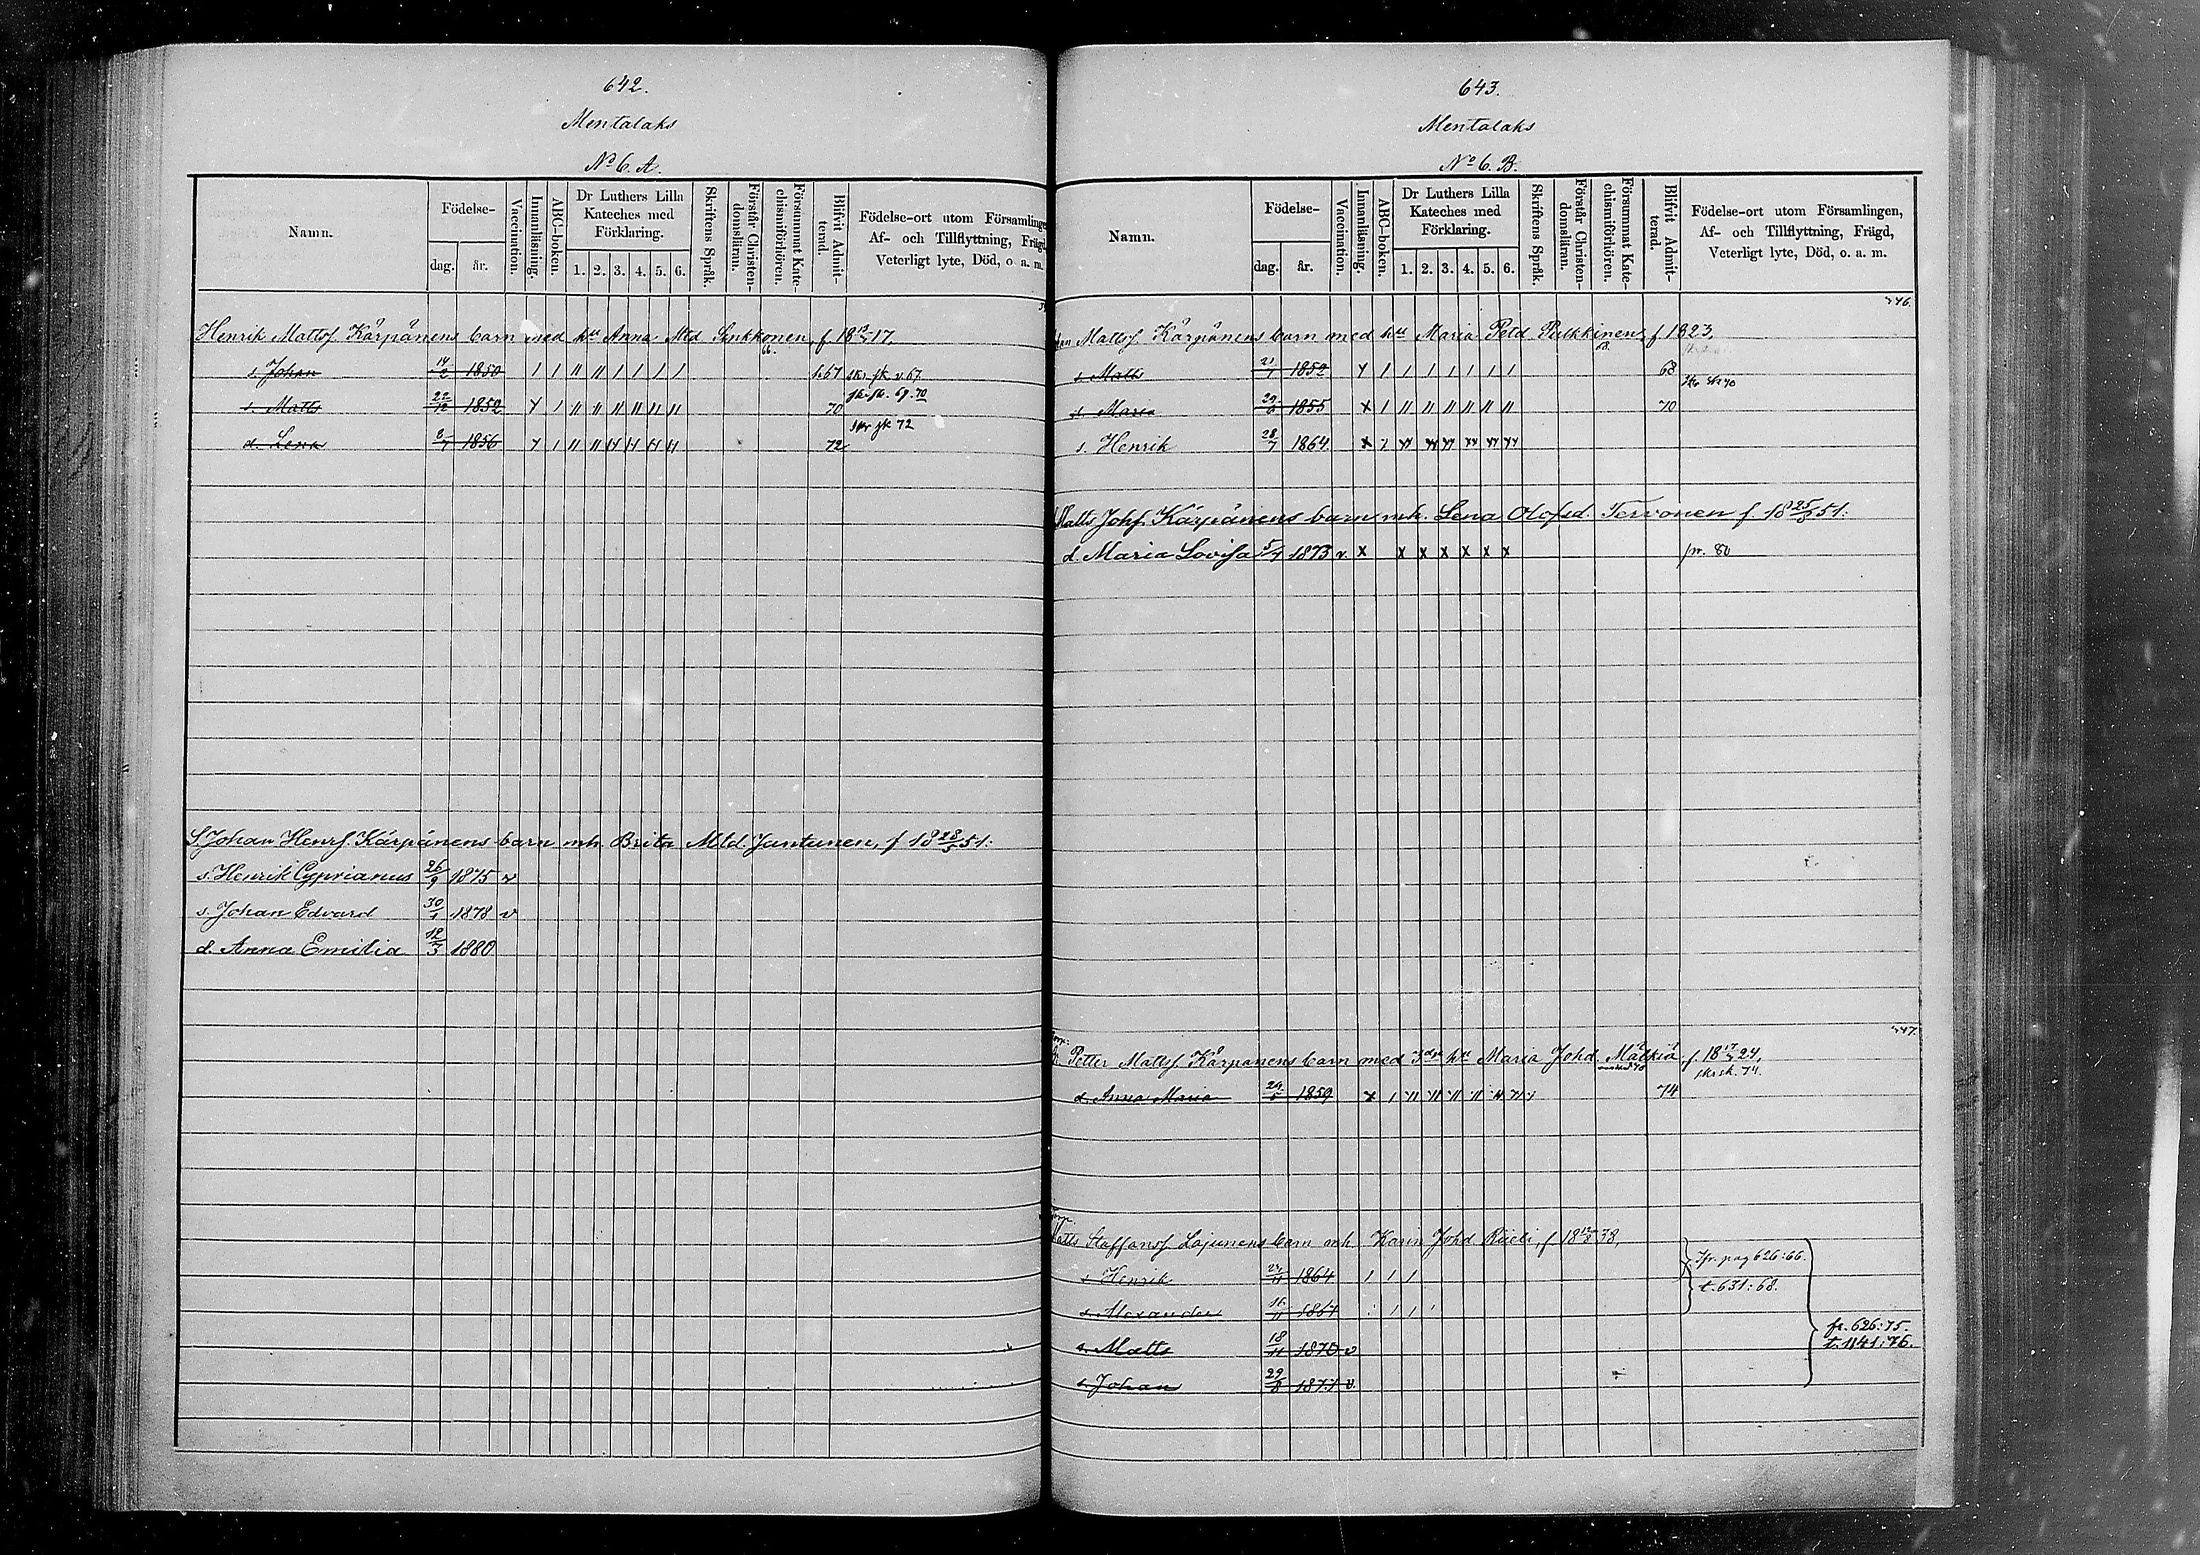 642.
Mentalaks
No 6. A.
Namn.
Födelse-
dag. år.
Vaccination.
Innanläsning.
ABC-boken.
Dr Luthers Lilla Kateches med Förklaring.
1. 2. 3. 4. 5. 6.
Skriftens Språk.
Förstår Christen-domsläran.
Försummat Kate-chismiförhören.
Blifvit Admit-terad.
Födelse-ort utom Församlingen
Af- och Tillflyttning, Frägd,
Veterligt lyte, Död, o. a. m.
Henrik Mattsf. Kärpänens barn med hu Anna Mtd Sinkkonen, f 18 17.
66.
s. Johan 14/2 1850 1 1 11 11 1 1 1 1 67
s. Matts 22/12 1852 70 69. 70
d. Lena 8/7 1856 72 skr sk 72
S. Johan Henrf. Kärpänens barn mh. Brita Mtd. Jantunen, f 18 28/5 51.
s. Henrik Cyprianus 26/9 1875 v
s. Johan Edvard 30/1 1878 v
d. Anna Emilia 12/3 1880
643.
Mentalaks
No 6. B.
Namn.
Födelse-
dag. år.
Vaccination.
Innanläsning.
ABC-boken.
Dr Luthers Lilla Kateches med Förklaring.
1. 2. 3. 4. 5. 6.
Skriftens Språk.
Förstår Christen-domsläran.
Försummat Kate-chismiförhören.
Blifvit Admit-terad.
Födelse-ort utom Församlingen,
Af- och Tillflyttning, Frägd,
Veterligt lyte, Död, o. a. m.
346.
Mattsf. Kärpänens barn med hu Maria Petd Pulkkinen, f 1823,
68.
s. Matts 21/1 1852 68
s. Maria 1855 70
s. Henrik 28/7 1864.
Matts Johf. Kärpänens barn mh. Lena Olofsd. Tervonen f. 18 25/8 51.
d. Maria Lovisa 5/4 1873 v. x x x x x x x fr. 80
347.
Petter Mattsf. Kärpänens barn med 3dje hu Maria Johd. Mälkiä, f. 18 24,
skr sk. 74.
d. Anna Maria 1859 74
Matts Staffansf. Lajunens barn mh. Karin Johd Riieli, f 18 38,
s. Henrik 1864 1 1 1 Ifr. pag 626:66.
t. 631:68.
s. Alexander 1867
fr. 626:75.
s. Matts 18/11 1870 v t. 1141:76.
s. Johan 29/8 v.